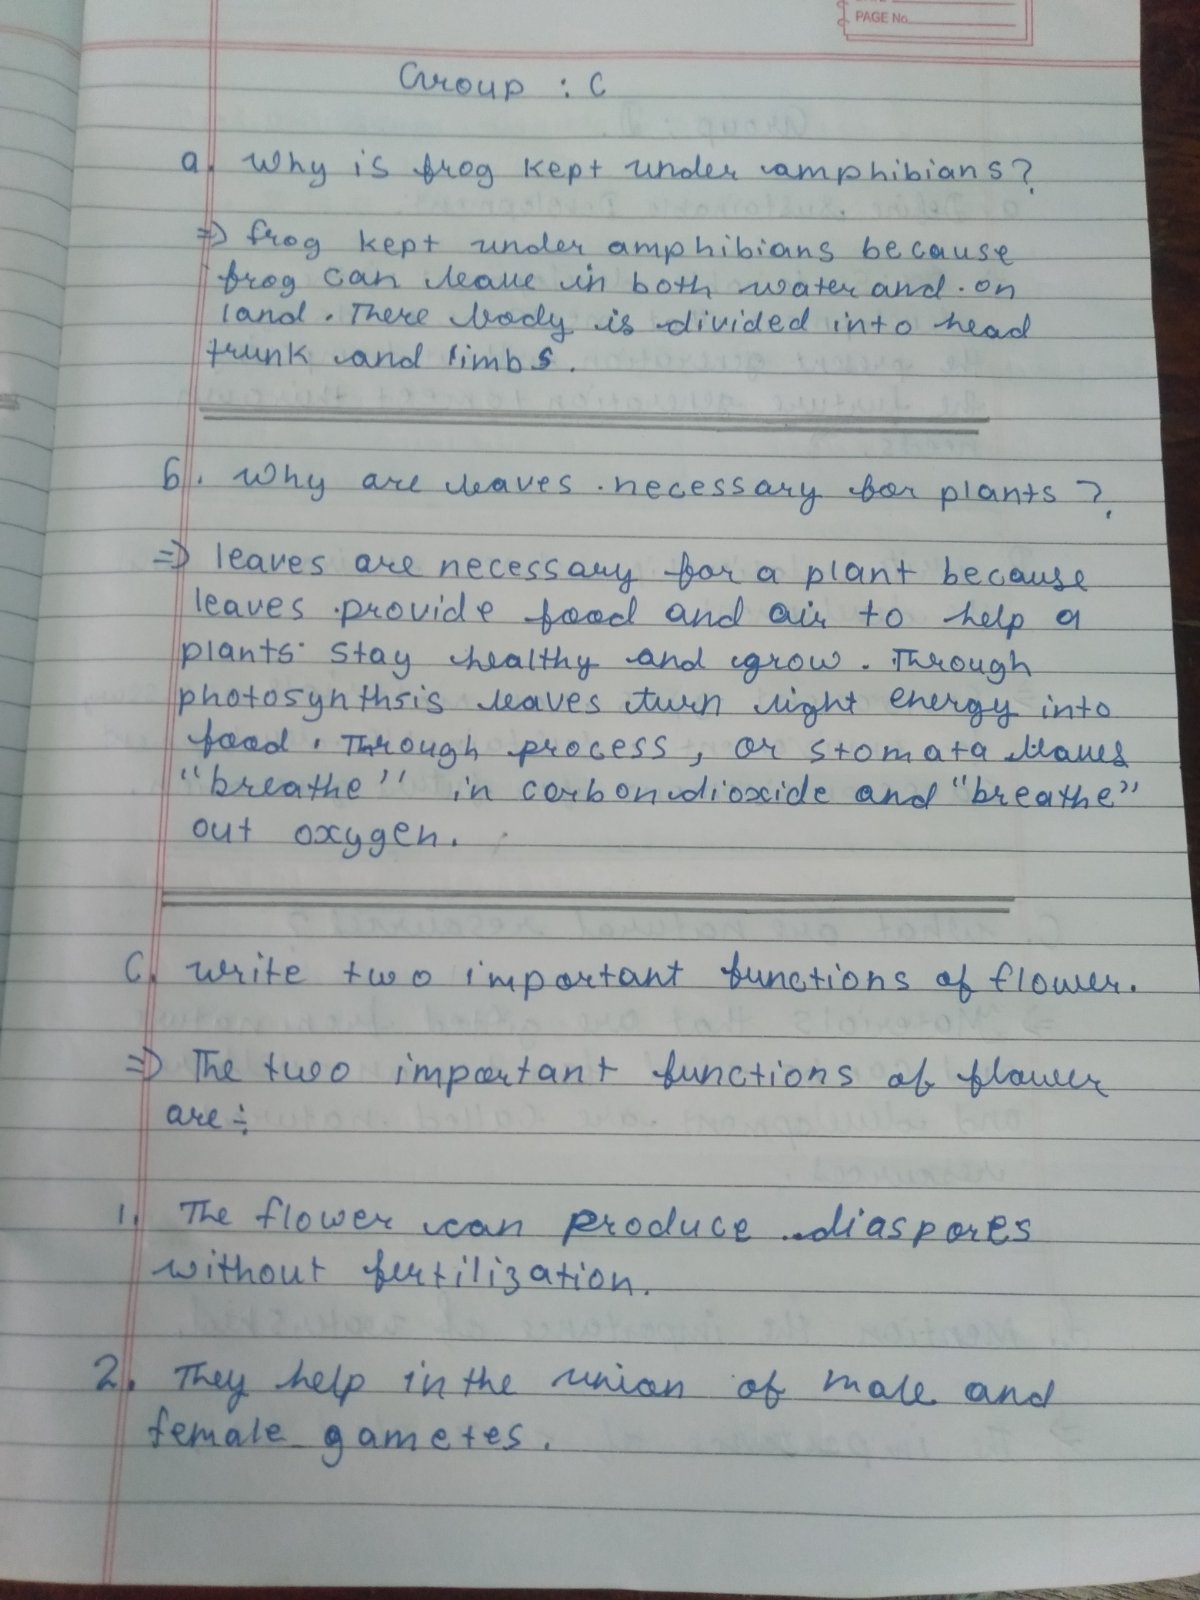 PAGE No.
Group : C
a. Why is frog kept under amphibians?
⇒ frog kept under amphibians because
frog can leave in both water and on
land. There body is divided into head
trunk and limbs.
b. Why are leaves necessary for plants?
⇒ leaves are necessary for a plant because
leaves provide food and air to help a
plants stay healthy and grow. Through
photosynthsis leaves turn light energy into
food. Through process, or stomata leaves
"breathe" in carbondioxide and "breathe"
out oxygen.
C. write two important functions of flower.
⇒ The two important functions of flower
are:
1. The flower can produce diaspores
without fertilization.
2. They help in the union of male and
female gametes.